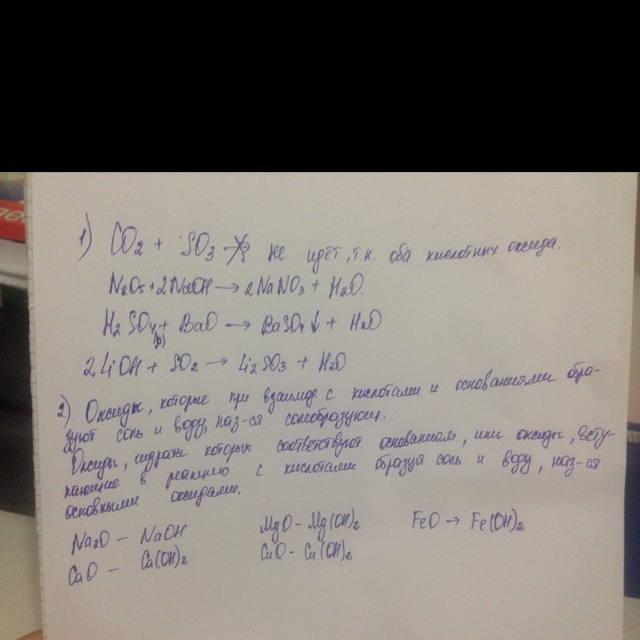 1) CO2 + SO3 ↛ не идёт, т.к. оба кислотных оксида.
N2O5+2NaOH → 2NaNO3 + H2O.
H2SO4(р) + BaO → BaSO4↓ + H2O
2LiOH + SO2 → Li2SO3 + H2O
2) Оксиды, которые при взаимод. с кислотами и основаниями обра-
зуют соль и воду, наз-ся солеобразующ.
Оксиды, гидраты которых соответствуют основаниям, или оксиды, всту-
пающие в реакцию с кислотами образуя соль и воду, наз-ся
основными оксидами.
Na2O – NaOH MgO – Mg(OH)2 FeO → Fe(OH)2
CaO – Ca(OH)2 CuO – Cu(OH)2